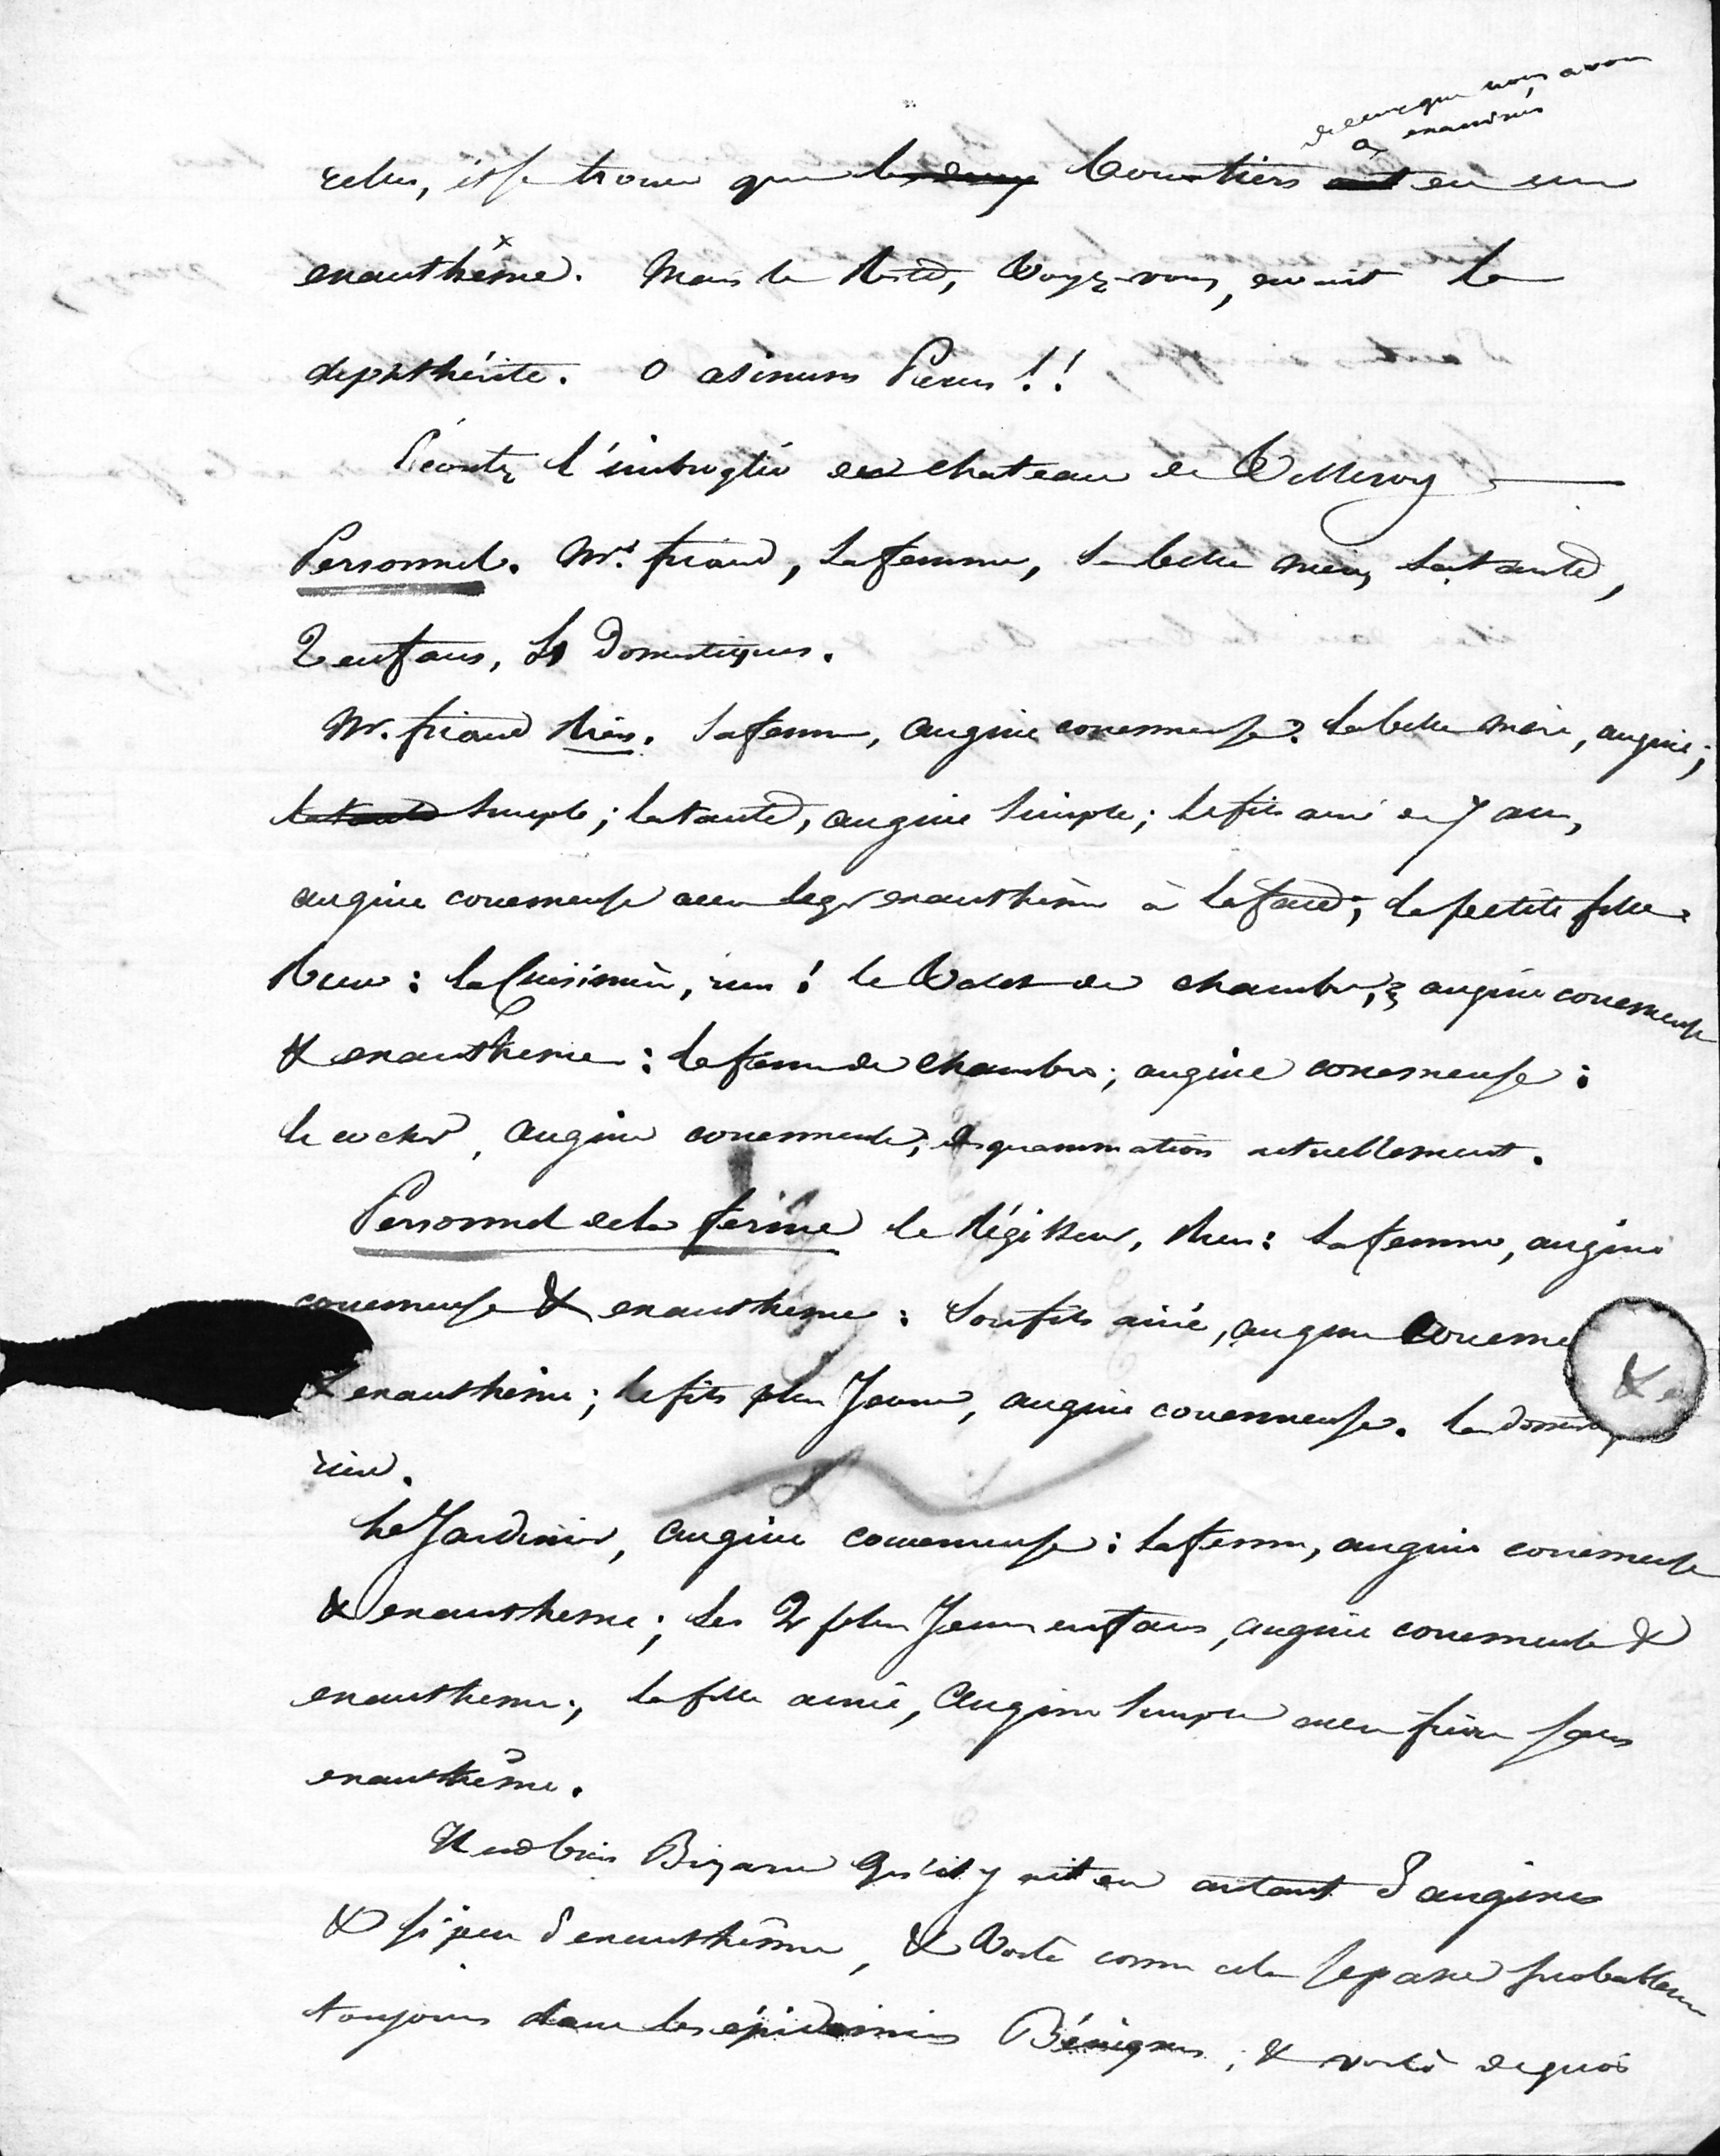 de ceux que nous avons
examinés
a
relles, il se trouve que les deux Coustiers ont eu un
exanthême. Mais le reste, Voyez-vous, avait la
diphthérite. O asinum Pecus !!
Écoutez l'imbroglio du chateau de Villeroy —
Personnel. Mr. friand, sa femme, sa belle mère, sa tante,
2 enfans, 4 Domestiques.
Mr. friand Rien. Sa femme, angine couenneuse. La belle mère, angine;
la tante simple; la tante, angine simple; le fils ainé de 7 ans,
angine couenneuse avec leger exanthème à la face; la petite fille
Rien: la Cuisinière, rien: le Valet de chambre, angine couenneuse
& exantheme: la femme de chambre; angine couenneuse:
le cocher, angine couenneuse, desquammation actuellement.
Personnel de la ferme le Régisseur, Rien: sa femme, angine
couenneuse & exantheme: Son fils ainé, angine couenne
& exanthème; le fils plus Jeune, angine couenneuse. la domestique
rien.
Le Jardinier, angine couenneuse: sa femme, angine couenneuse
& exantheme; les 2 plus Jeunes enfans, angine couenneuse &
exantheme; la fille ainée, Angine simple avec fièvre sans
exanthême.
Il est bien Bizarre qu'il y ait eu autant d'angines
& si peu d'exanthême, & Voilà comme cela se passe probablem
toujours dans les épidémies Bénignes, & voilà de quoi